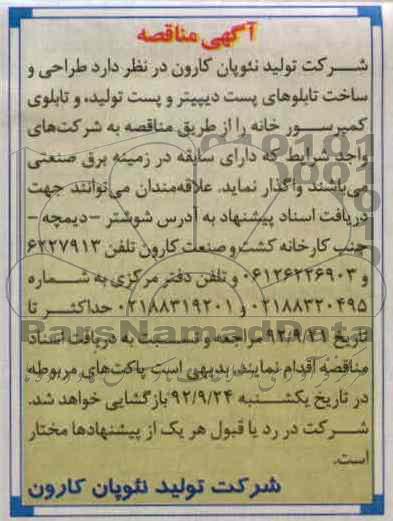 آگهی مناقصه
شرکت تولید نئوپان کارون در نظر دارد طراحی و
ساخت تابلوهای پست دیپیتر و پست تولید، و تابلوی
کمپرسور خانه را از طریق مناقصه به شرکت‌های
واجد شرایط که دارای سابقه در زمینه برق صنعتی
می‌باشند واگذار نماید. علاقه‌مندان می‌توانند جهت
دریافت اسناد پیشنهاد به آدرس شوشتر –دیمچه–
جنب کارخانه کشت و صنعت کارون تلفن ۶۲۲۷۹۱۳
و ۰۶۱۲۶۲۲۶۹۰۳ و تلفن دفتر مرکزی به شماره
۰۲۱۸۸۳۲۰۴۹۵ و ۰۲۱۸۸۳۱۹۲۰۱ حداکثر تا
ParsNamadData
تاریخ ۹۲/۹/۲۱ مراجعه و نسبت به دریافت اسناد
مناقصه اقدام نمایند، بدیهی است پاکت‌های مربوطه
در تاریخ یکشنبه ۹۲/۹/۲۴ بازگشایی خواهد شد.
شرکت در رد یا قبول هر یک از پیشنهادها مختار
است.
شرکت تولید نئوپان کارون